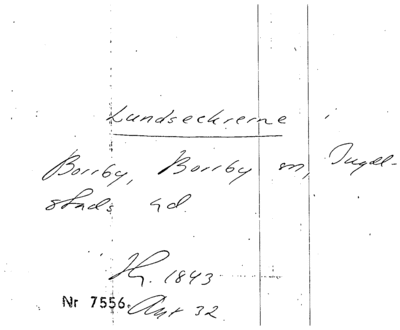 Lundseckrerne
Borrby, Borrby sn, Ingel-
stads hd
Hg. 1843
Nr 7556. Ant 32